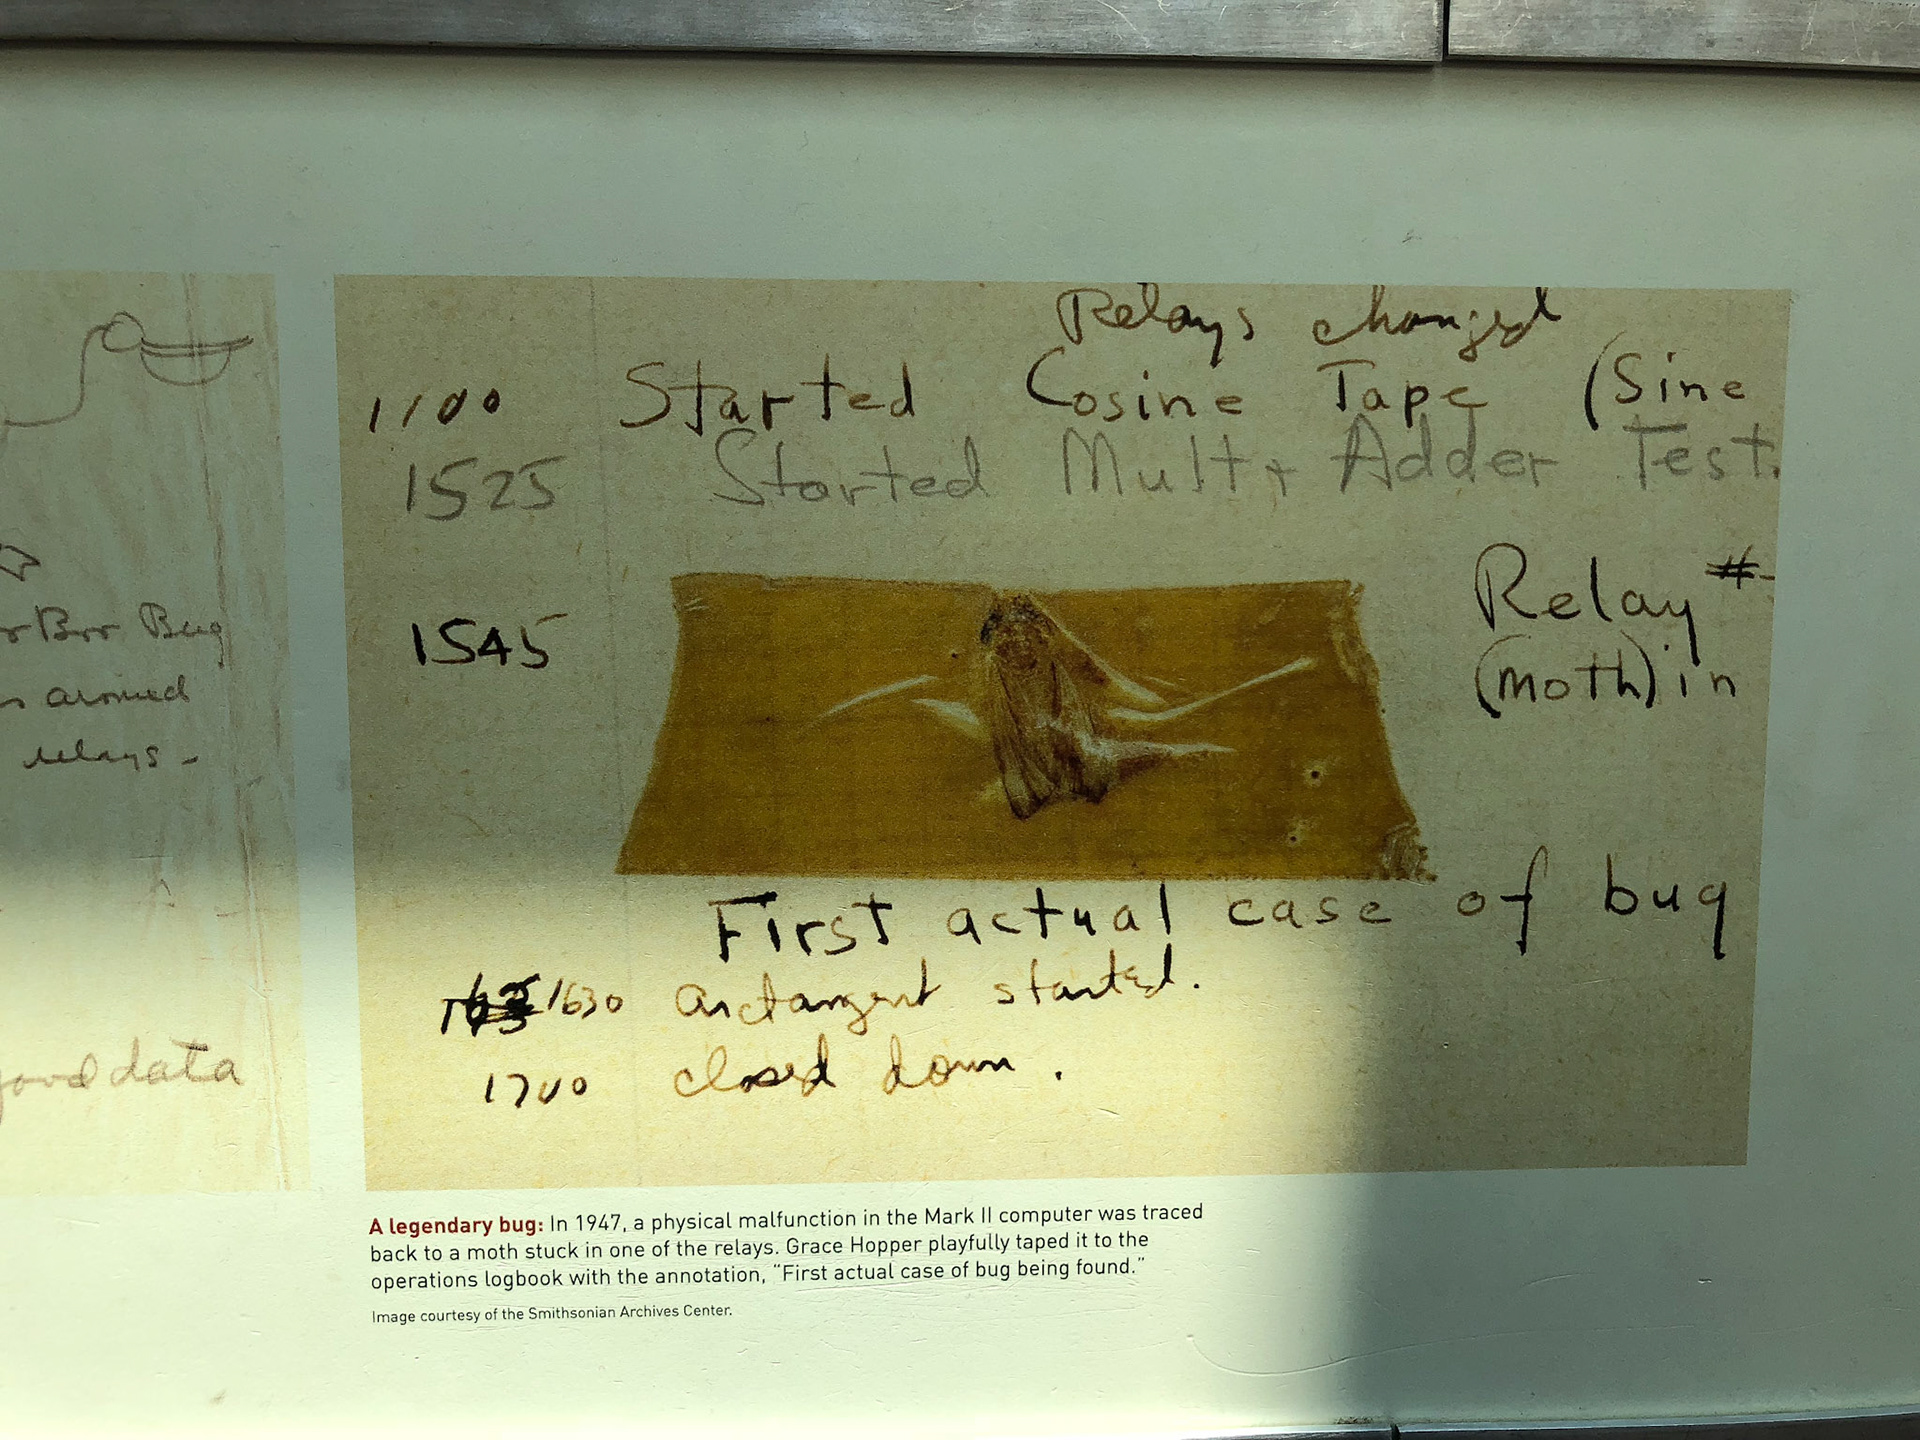 Brr Bug
around
relays -
good data
Relays changed
1100 Started Cosine Tape (Sine
1525 Started Mult + Adder Test.
1545
Relay #
(moth) in
First actual case of bug
1630 arctangent started.
1700 closed down.
A legendary bug: In 1947, a physical malfunction in the Mark II computer was traced
back to a moth stuck in one of the relays. Grace Hopper playfully taped it to the
operations logbook with the annotation, “First actual case of bug being found.”
Image courtesy of the Smithsonian Archives Center.